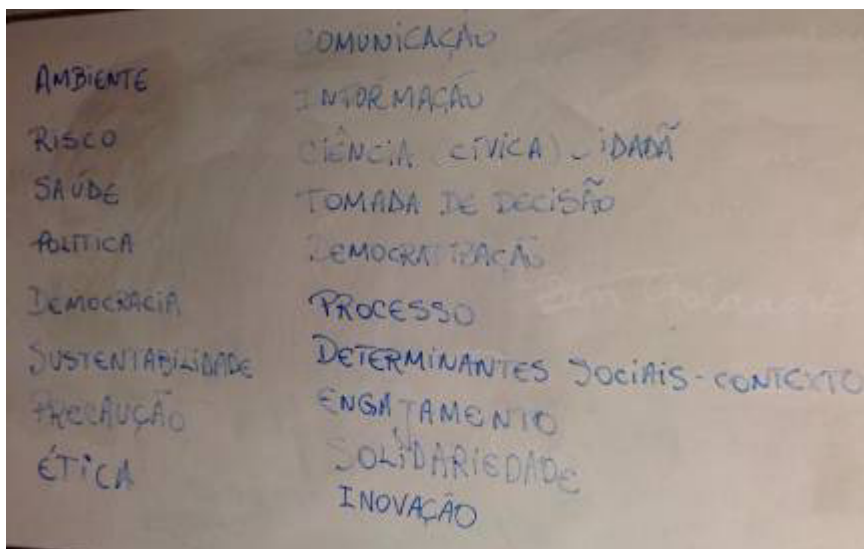 AMBIENTE
RISCO
SAÚDE
POLÍTICA
DEMOCRACIA
SUSTENTABILIDADE
PRECAUÇÃO
ÉTICA
COMUNICAÇÃO
INFORMAÇÃO
CIÊNCIA (CÍVICA) CIDADÃ
TOMADA DE DECISÃO
DEMOCRATIZAÇÃO
PROCESSO
DETERMINANTES SOCIAIS - CONTEXTO
ENGAJAMENTO
SOLIDARIEDADE
INOVAÇÃO